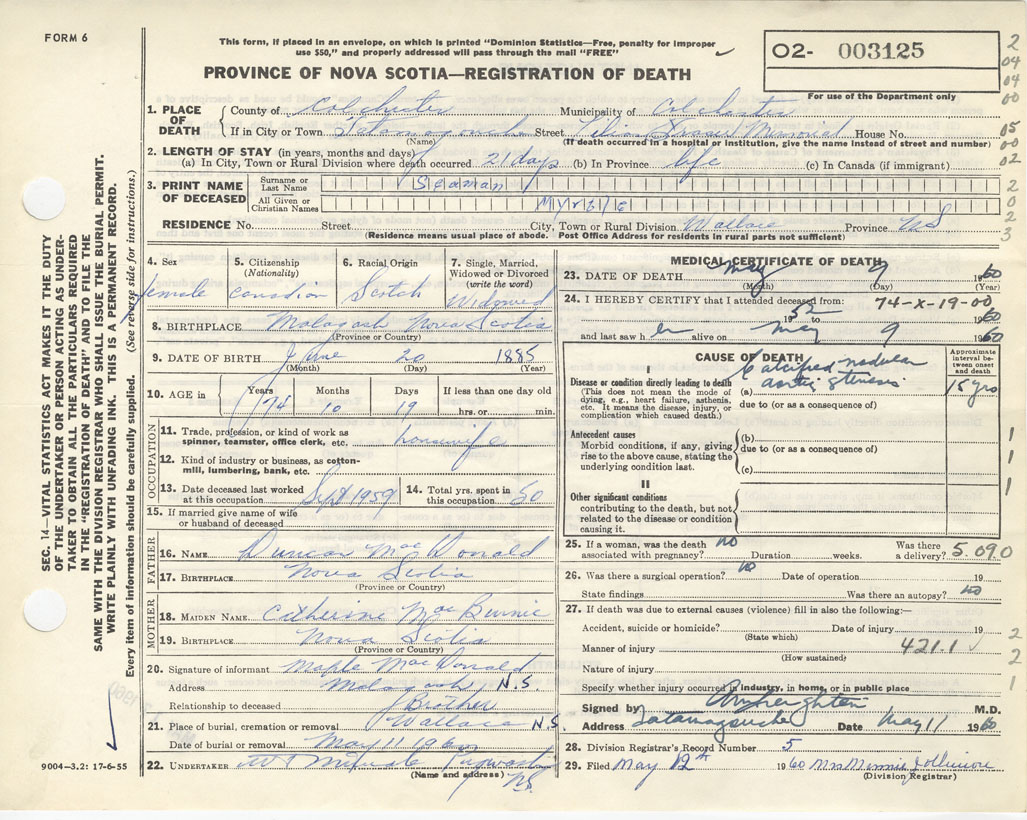 FORM 6
This form, if placed in an envelope, on which is printed "Dominion Statistics—Free, penalty for improper
use $50," and properly addressed will pass through the mail "FREE"
PROVINCE OF NOVA SCOTIA—REGISTRATION OF DEATH
O2- 003125
For use of the Department only
2
04
04
00
05
00
02
2
0
2
3
1. PLACE OF DEATH
County of Colchester Municipality of Colchester
If in City or Town Tatamagouche Street Memorial House No.
(Name) (If death occurred in a hospital or institution, give the name instead of street and number)
2. LENGTH OF STAY (in years, months and days)
(a) In City, Town or Rural Division where death occurred 21 days (b) In Province life (c) In Canada (if immigrant)
3. PRINT NAME OF DECEASED
Surname or Last Name Seaman
All Given or Christian Names Myrtle
RESIDENCE No. Street City, Town or Rural Division Wallace Province NS
(Residence means usual place of abode. Post Office Address for residents in rural parts not sufficient)
SEC. 14—VITAL STATISTICS ACT MAKES IT THE DUTY
OF THE UNDERTAKER OR PERSON ACTING AS UNDER-
TAKER TO OBTAIN ALL THE PARTICULARS REQUIRED
IN THE "REGISTRATION OF DEATH" AND TO FILE THE
SAME WITH THE DIVISION REGISTRAR WHO SHALL ISSUE THE BURIAL PERMIT.
WRITE PLAINLY WITH UNFADING INK. THIS IS A PERMANENT RECORD.
Every item of information should be carefully supplied. (See reverse side for instructions.)
4. Sex female
5. Citizenship (Nationality) Canadian
6. Racial Origin Scotch
7. Single, Married, Widowed or Divorced (write the word) Widowed
8. BIRTHPLACE Malagash Nova Scotia
(Province or Country)
9. DATE OF BIRTH June 20 1885
(Month) (Day) (Year)
10. AGE in Years 74 Months 10 Days 19 If less than one day old
hrs. or min.
OCCUPATION
11. Trade, profession, or kind of work as
spinner, teamster, office clerk, etc. housewife
12. Kind of industry or business, as cotton-
mill, lumbering, bank, etc.
13. Date deceased last worked
at this occupation Sept 1959
14. Total yrs. spent in
this occupation 50
15. If married give name of wife
or husband of deceased
FATHER
16. NAME Duncan MacDonald
17. BIRTHPLACE Nova Scotia
(Province or Country)
MOTHER
18. MAIDEN NAME Catherine Mac
19. BIRTHPLACE Nova Scotia
(Province or Country)
20. Signature of informant MacDonald
Address Malagash, N.S.
Relationship to deceased Brother
21. Place of burial, cremation or removal Wallace N.S
Date of burial or removal May 11 1960
22. UNDERTAKER Pugwash
(Name and address) NS.
9004-3.2: 17-6-55
MEDICAL CERTIFICATE OF DEATH
23. DATE OF DEATH May 9 1960
(Month) (Day) (Year)
24. I HEREBY CERTIFY that I attended deceased from: 74-X-19-00
1952 to 1960
and last saw her alive on May 9 1960
CAUSE OF DEATH
Approximate interval between onset and death
I
Disease or condition directly leading to death
(This does not mean the mode of
dying, e.g., heart failure, asthenia,
etc. It means the disease, injury, or
complication which caused death.)
(a) Calcified nodular aortic stenosis 15 yrs
due to (or as a consequence of)
Antecedent causes
Morbid conditions, if any, giving
rise to the above cause, stating the
underlying condition last.
(b)
due to (or as a consequence of)
(c)
II
Other significant conditions
contributing to the death, but not
related to the disease or condition
causing it.
1
1
1
25. If a woman, was the death
associated with pregnancy? no Duration weeks. Was there
a delivery? 5.090
26. Was there a surgical operation? no Date of operation 19
State findings Was there an autopsy? no
27. If death was due to external causes (violence) fill in also the following:—
Accident, suicide or homicide? Date of injury 19
(State which)
Manner of injury 421.1
(How sustained)
Nature of injury
Specify whether injury occurred in industry, in home, or in public place
2
2
1
Signed by M.D.
Address Tatamagouche Date May 11 1960
28. Division Registrar's Record Number 5
29. Filed May 12th 1960 Mrs Minnie
(Division Registrar)